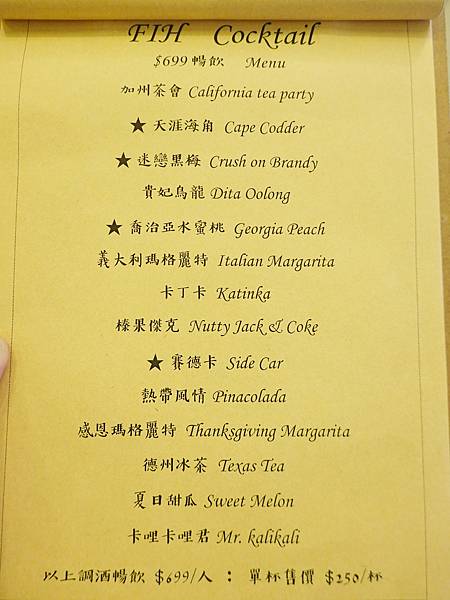 FIH Cocktail
$699 暢飲 Menu
加州茶會 California tea party
★ 天涯海角 Cape Codder
★ 迷戀黑梅 Crush on Brandy
貴妃烏龍 Dita Oolong
★ 喬治亞水蜜桃 Georgia Peach
義大利瑪格麗特 Italian Margarita
卡丁卡 Katinka
榛果傑克 Nutty Jack & Coke
★ 賽德卡 Side Car
熱帶風情 Pinacolada
感恩瑪格麗特 Thanksgiving Margarita
德州冰茶 Texas Tea
夏日甜瓜 Sweet Melon
卡哩卡哩君 Mr. kalikali
以上調酒暢飲 $699/人 : 單杯售價 $250/杯